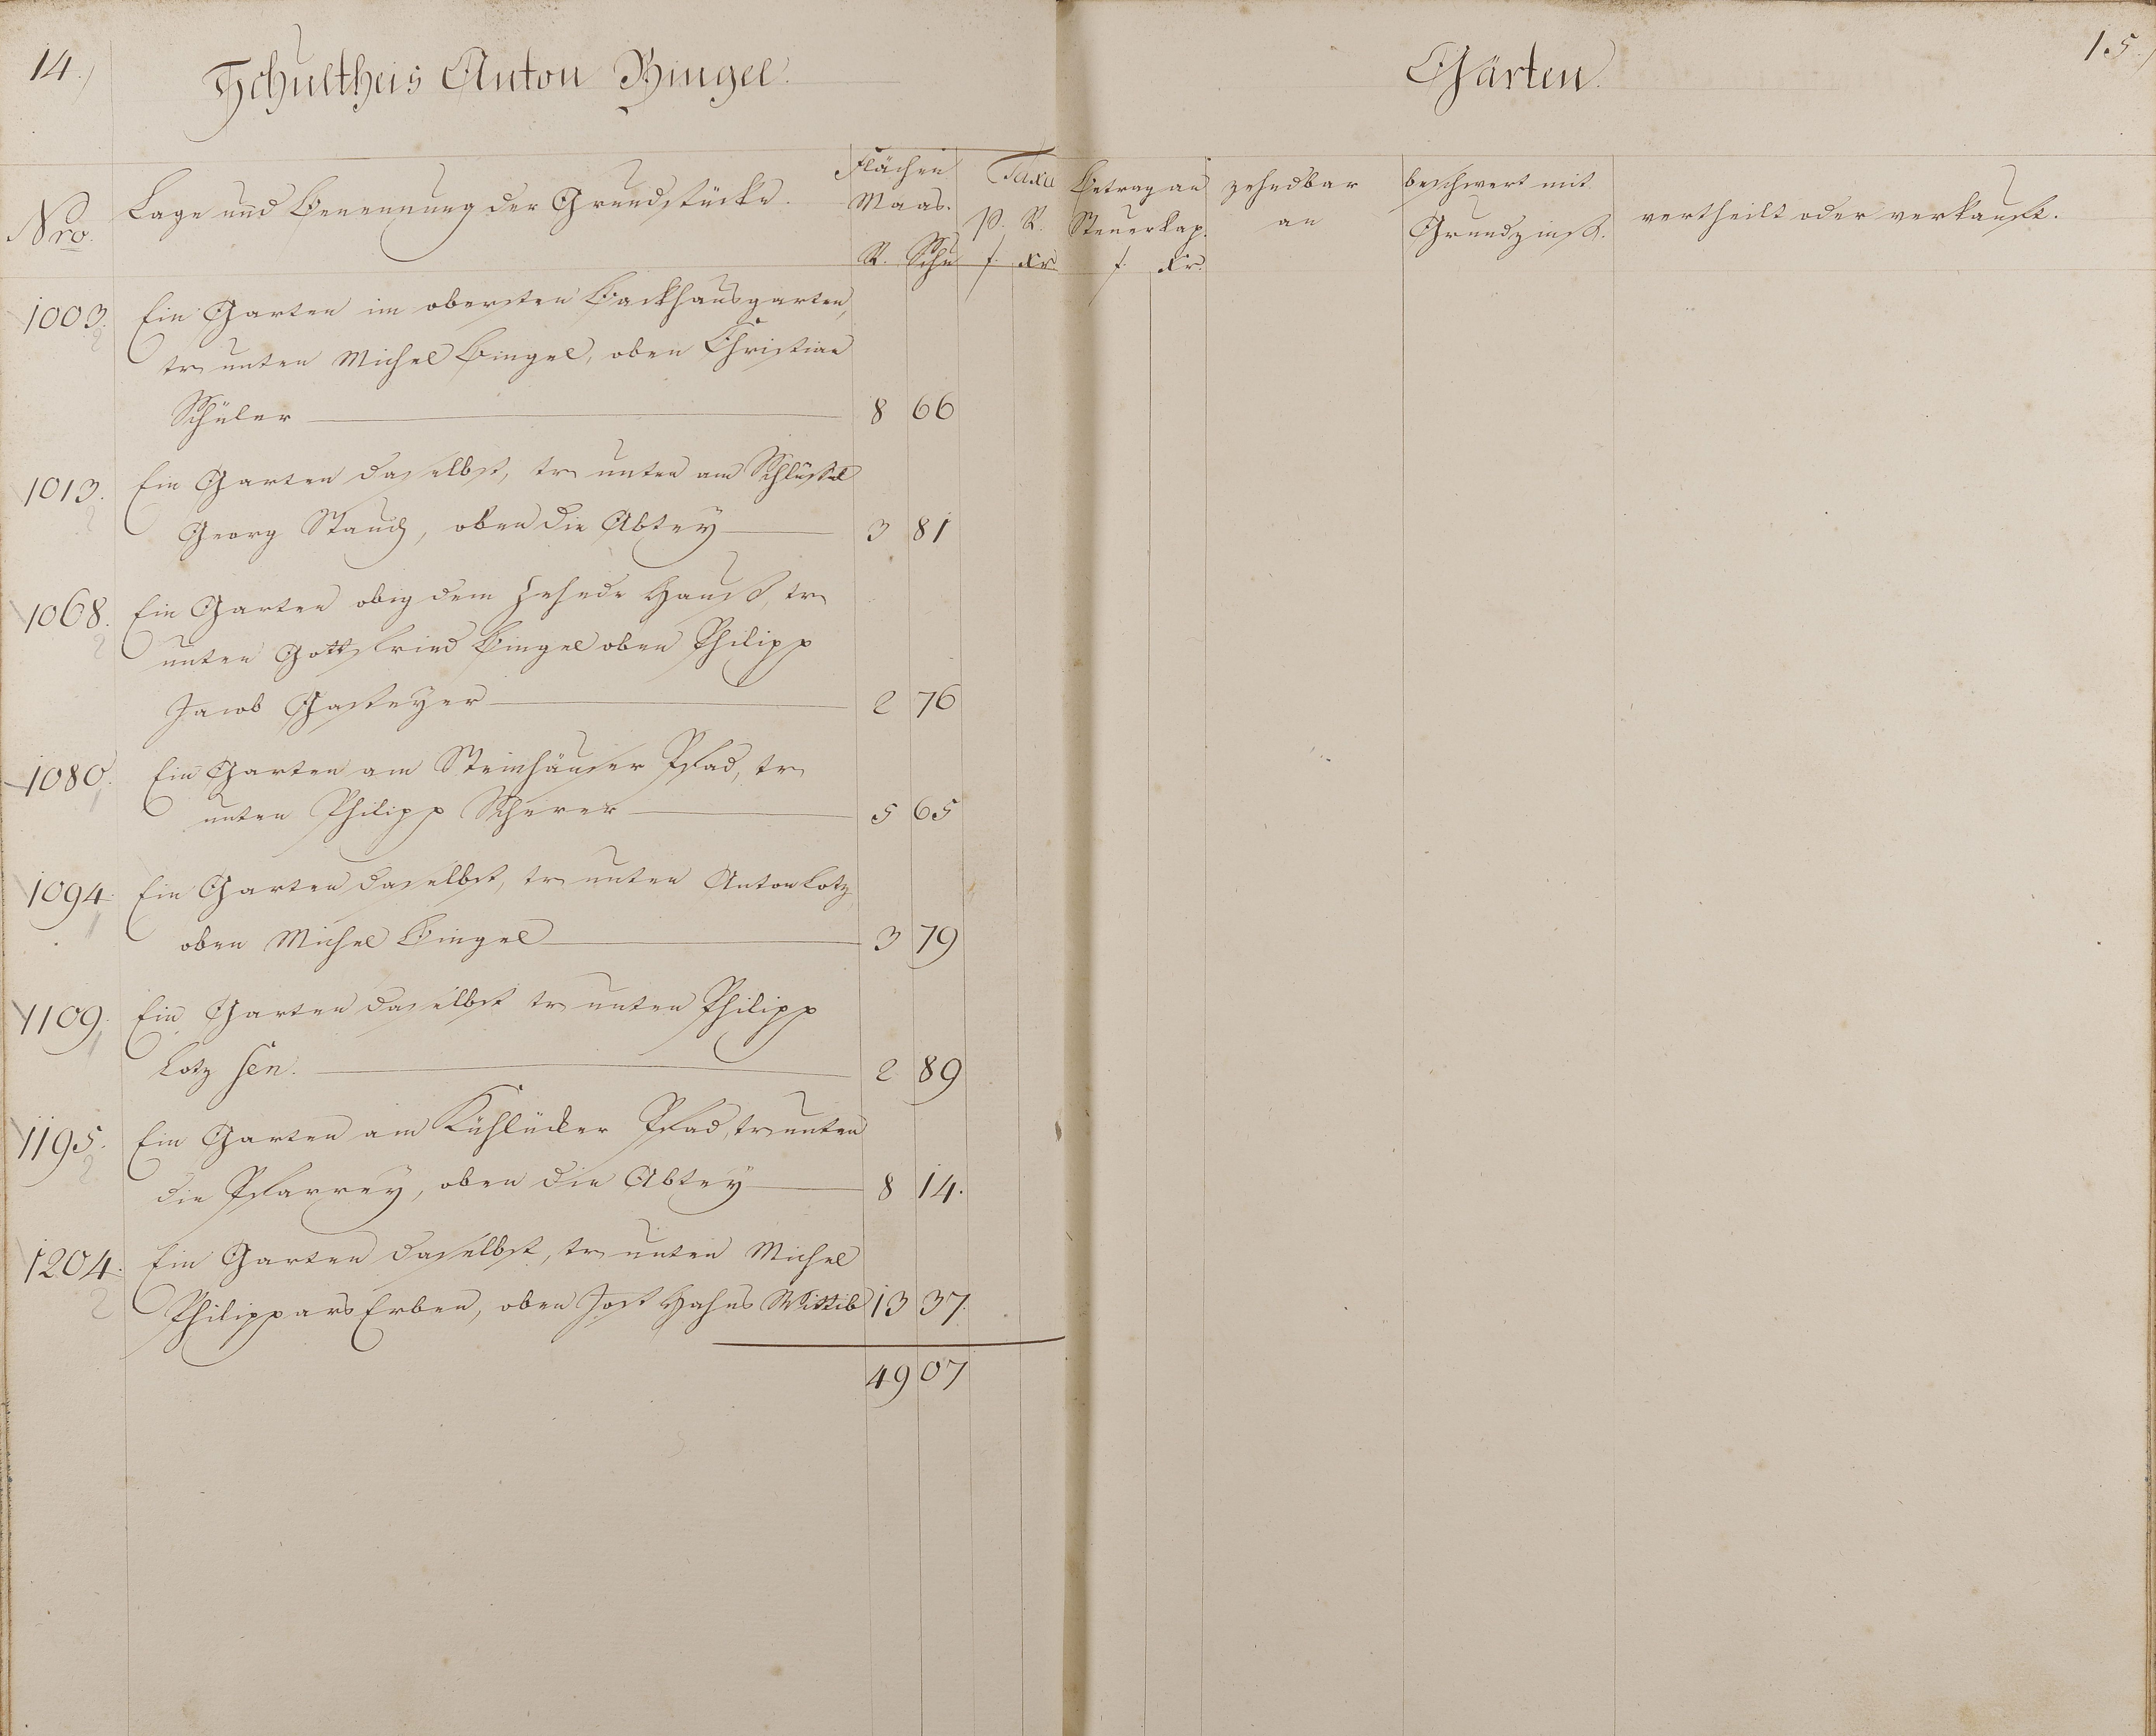 14.)
Schultheis Anton Bingel.
Gärten.
15.)
Nro.
Lage und Benennung der Grundstücke.
Flächen Maas.
R. Schu
Taxa
p. R.
f. xr.
Betrag an Steuerkap.
f. xr.
zehndbar an
beschwert mit Grundzinsß.
vertheilt oder verkauft.
1003. Ein Garten im obersten Backhausgarten,
tr. unten Michel Bingel, oben Christian
Schüler 8 66
1013. Ein Garten daselbst, tr. unten am Schlüssel
Georg Stauch, oben die Abtey 3 81
1068. Ein Garten obig dem Zehnde Hauß, tr.
unten Gottfried Bingel oben Philipp
Jacob Gasteyer 2 76
1080. Ein Garten am Steinhäuser Pfad, tr.
unten Philipp Scherer 5 65
1094. Ein Garten daselbst, tr. unten Anton Lotz,
oben Michel Bingel 3 79
1109. Ein Garten daselbst tr. unten Philipp
Lotz sen. 2 89
1195. Ein Garten am Kühlücker Pfad, tr. unten
die Pfarrey, oben die Abtey 8 14.
1204. Ein Garten daselbst, tr. unten Michel
Philippars Erben, oben Jost Hahns Wittib 13 37.
49 07